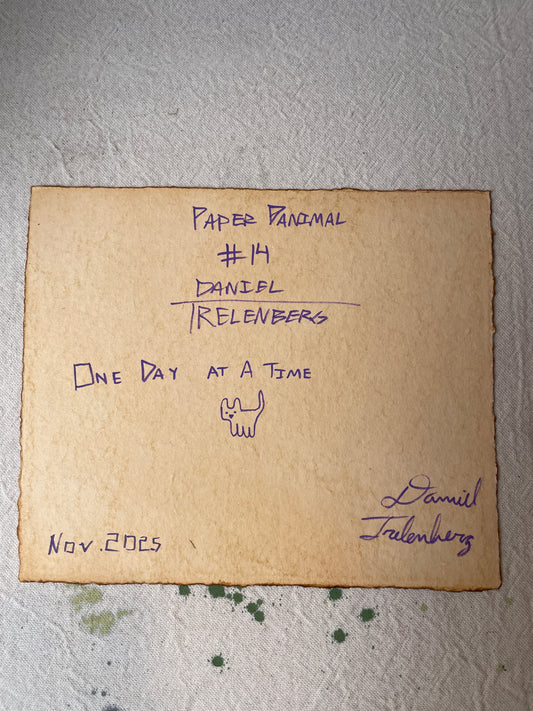 PAPER DANIMAL
#14
DANIEL
TRELENBERG
ONE DAY AT A TIME
Daniel
Trelenberg
NOV. 2025